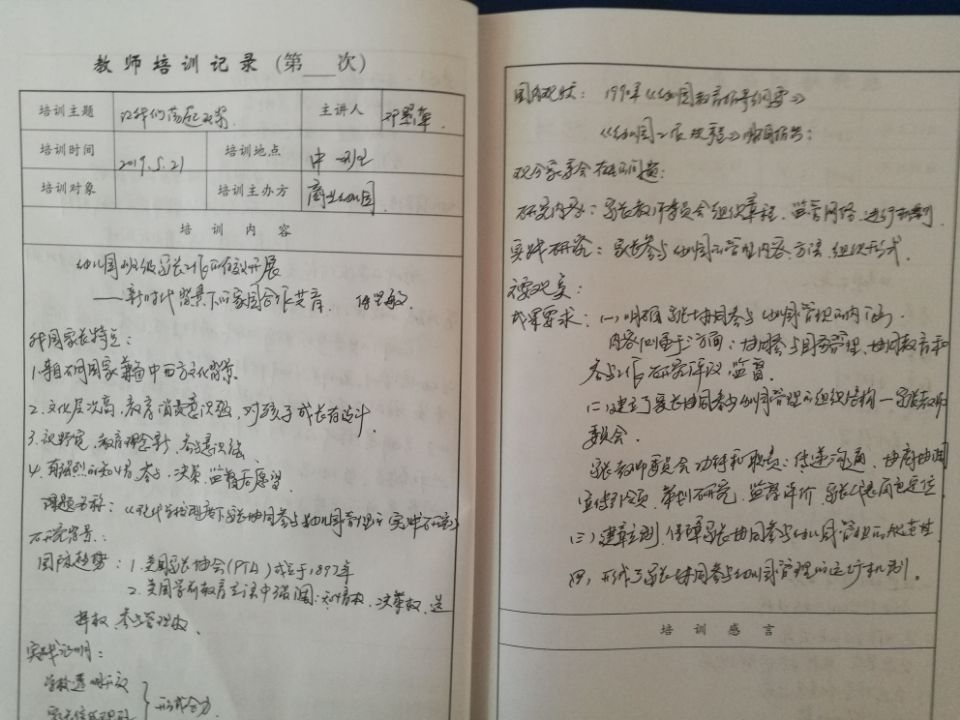 教师培训记录(第___次)
培训主题 让我们荡起双桨 主讲人
培训时间 2019.5.21 培训地点 中一班
培训对象 培训主办方 商业幼儿园
培训内容
幼儿园班级家长工作的有效开展
——新时代背景下的家园合作共育
我园家长特点:
1.来自不同国家兼备中西方文化背景
2.文化层次高,教育消费意识强,对孩子成长有设计
3.视野宽,教育理念新,参与意识强
4.有强烈的知情、参与、决策、监督等愿望
课题名称:《现代学校制度下家长协同参与幼儿园管理的实践研究》
研究背景:
国际趋势:1.美国家长协会(PTA)成立于1897年
2.美国学前教育立法中强调:知情权、决策权、选
择权、参与管理权、
实践证明:
学校透明开放
形成合力
国内现状:1990年《幼儿园教育指导纲要》
《幼儿园工作规程》
现今家委会存在的问题:
研究内容:家长教师委员会组织章程、监管网络、运行机制
实践研究:家长参与幼儿园的管理内容、方法、组织形式
主要观点:
成果要求:(一)明确了家长协同参与幼儿园管理的内涵、
内容侧重于方向:协同参与国家管理、协同教育和
参与工作研究评议、监督
(二)建立了家长协同参与幼儿园管理的组织结构—家长教师
委员会
家长教师委员会功能和职责:传递沟通、协商协调
宣传引领、策划研究、监督评价、家长代表角色定位
(三)建章立制,保障家长协同参与幼儿园管理的规范性
四、形成了家长协同参与幼儿园管理的运行机制。
培训感言